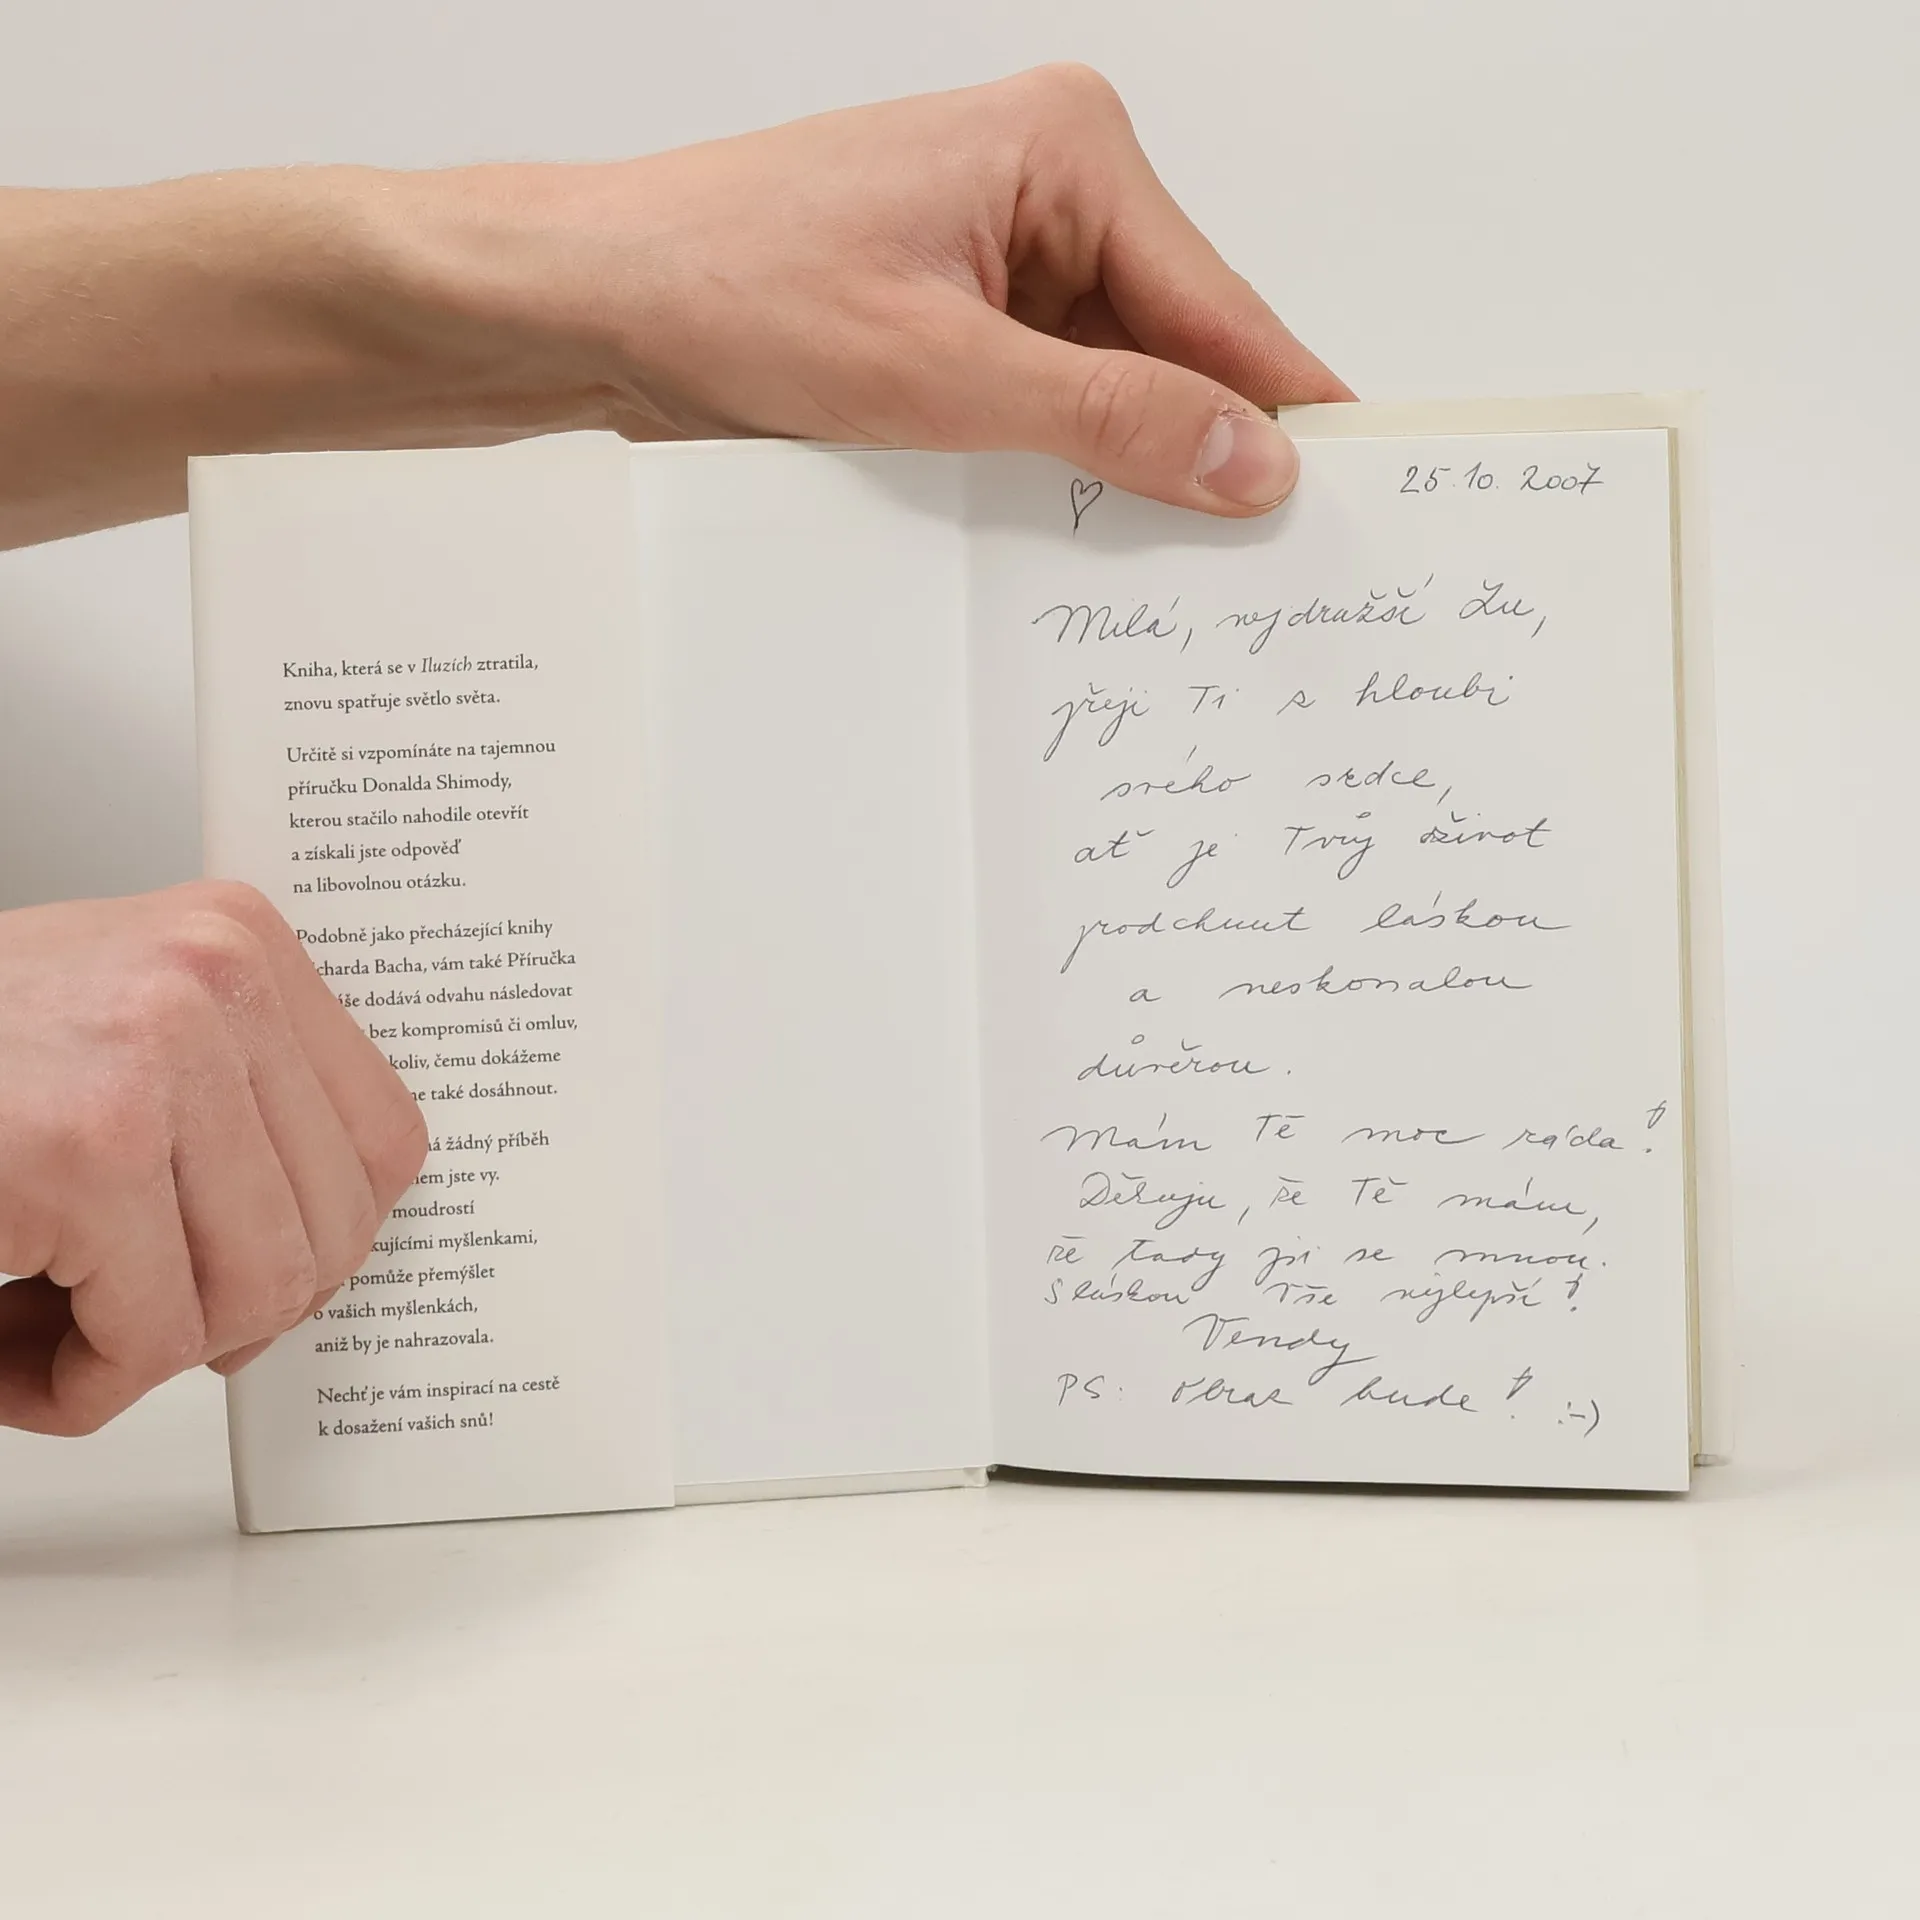 Kniha, která se v Iluzích ztratila,
znovu spatřuje světlo světa.
Určitě si vzpomínáte na tajemnou
příručku Donalda Shimody,
kterou stačilo nahodile otevřít
a získali jste odpověď
na libovolnou otázku.
Podobně jako přecházející knihy
charda Bacha, vám také Příručka
áše dodává odvahu následovat
bez kompromisů či omluv,
koliv, čemu dokážeme
me také dosáhnout.
á žádný příběh
jste vy.
moudrostí
kujícími myšlenkami,
pomůže přemýšlet
o vašich myšlenkách,
aniž by je nahrazovala.
Nechť je vám inspirací na cestě
k dosažení vašich snů!
25.10. 2007
Milá, nejdražší Zu,
přeji Ti z hloubi
svého srdce,
ať je Tvůj život
prodchnut láskou
a neskonalou
důvěrou.
Mám Tě moc ráda!
Děkuju, že Tě mám,
že tady jsi se mnou.
S láskou vše nejlepší!
Vendy
PS: obraz bude! :-)